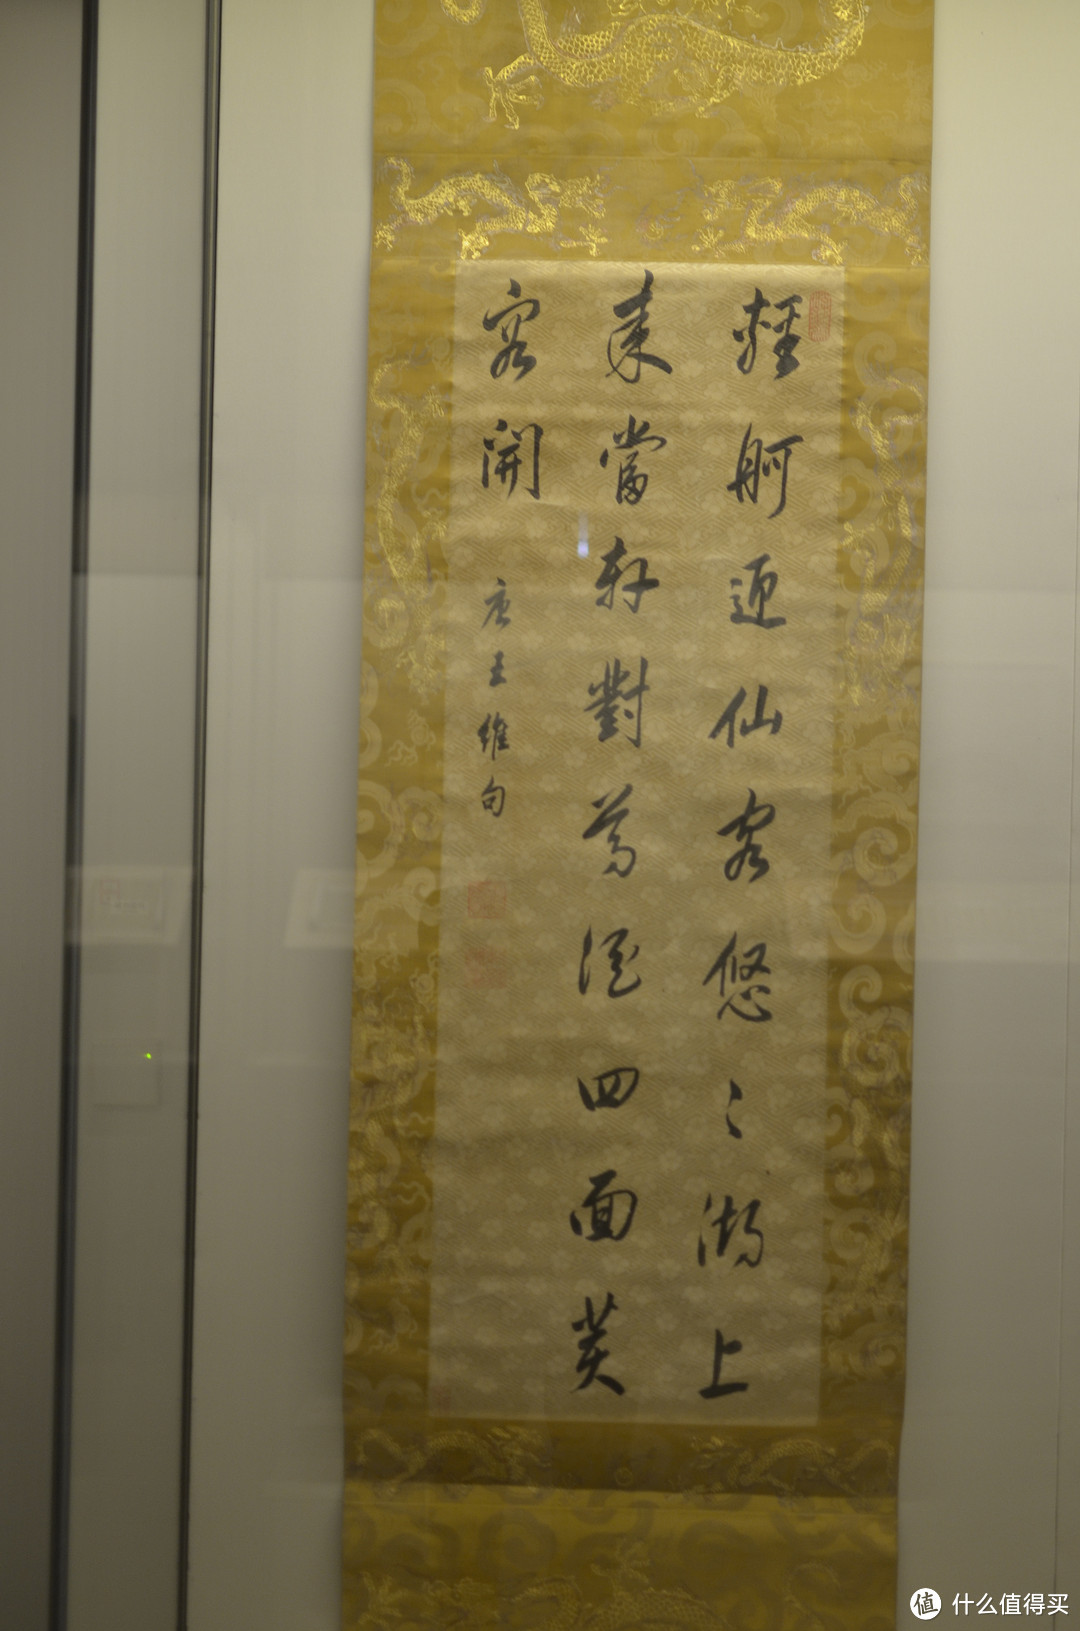 輕舸迎仙客悠〻湖上
來當軒對尊酒四面芙
容開 唐王維句
值 什么值得买